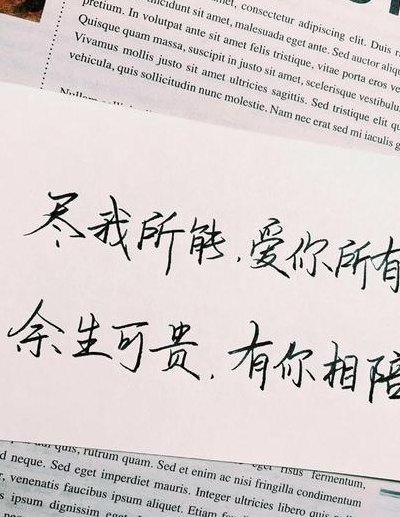 , consectetur adipiscing elit. Duis
tincidunt sit amet, malesuada eget ante. Sed auctor
pretium. In volutpat ante sit amet felis tristique, vitae porta eros
Quisque quam massa, suscipit in justo sit amet, scelerisque vestibulum
Vivamus mollis justo sit amet ultricies sagittis. Sed tristique elit
vehicula, quis sollicitudin nunc molestie. Nam nec erat sed mi iaculis
尽我所能,爱你所有
余生可贵,有你相陪
quis, rutrum quam. Sed
risus fermentum,
neque. Sed eget imperdiet mauris. Sed et enim ac nisi fringilla condimentum
venenatis faucibus ipsum aliquet. Integer ultricies libero quis
ipsum dignissim eget
Etiam